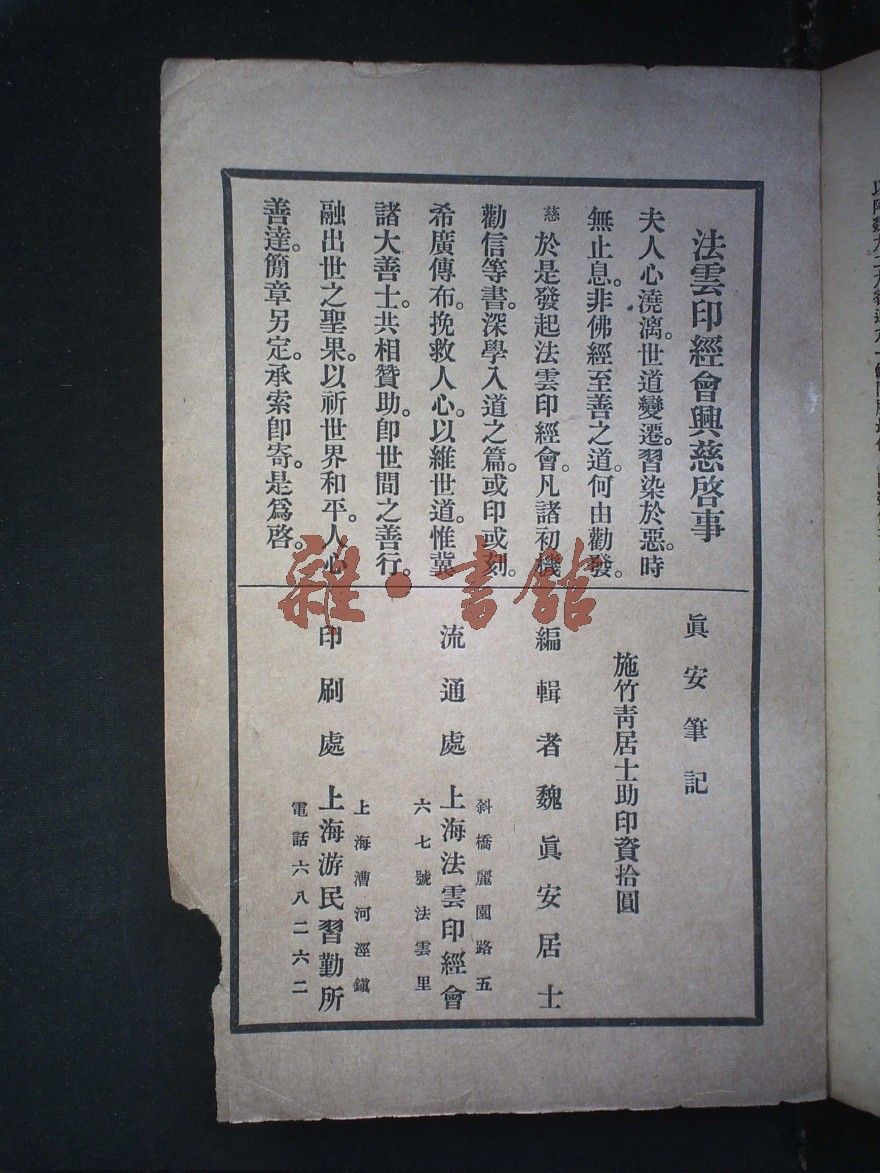 法雲印經會興慈啓事
夫人心澆漓。世道變遷。習染於惡。時
無止息。非佛經至善之道。何由勸發。
慈於是發起法雲印經會。凡諸初機
勸信等書。深學入道之篇。或印或刻。
希廣傳布。挽救人心。以維世道。惟冀
諸大善士。共相贊助。卽世間之善行。
融出世之聖果。以祈世界和平。人心
善達。簡章另定。承索卽寄。是爲啓。
眞安筆記
施竹靑居士助印資拾圓
編輯者魏眞安居士
斜橋麗園路五
流通處上海法雲印經會
六七號法雲里
上海漕河涇鎭
印刷處上海游民習勤所
電話六八二六二
雜·書館